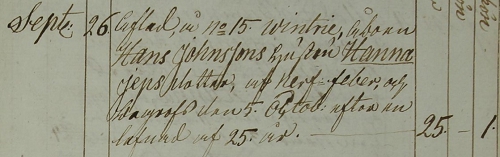 Sept. 26. Afled, å No 15. Wintrie, åboen
Hans Johnssons hustru Hanna
Jeps dotter, af nerf-feber, och
begrofs den 5. Octob: efter en
lefnad af 25. år. 25. – 1.